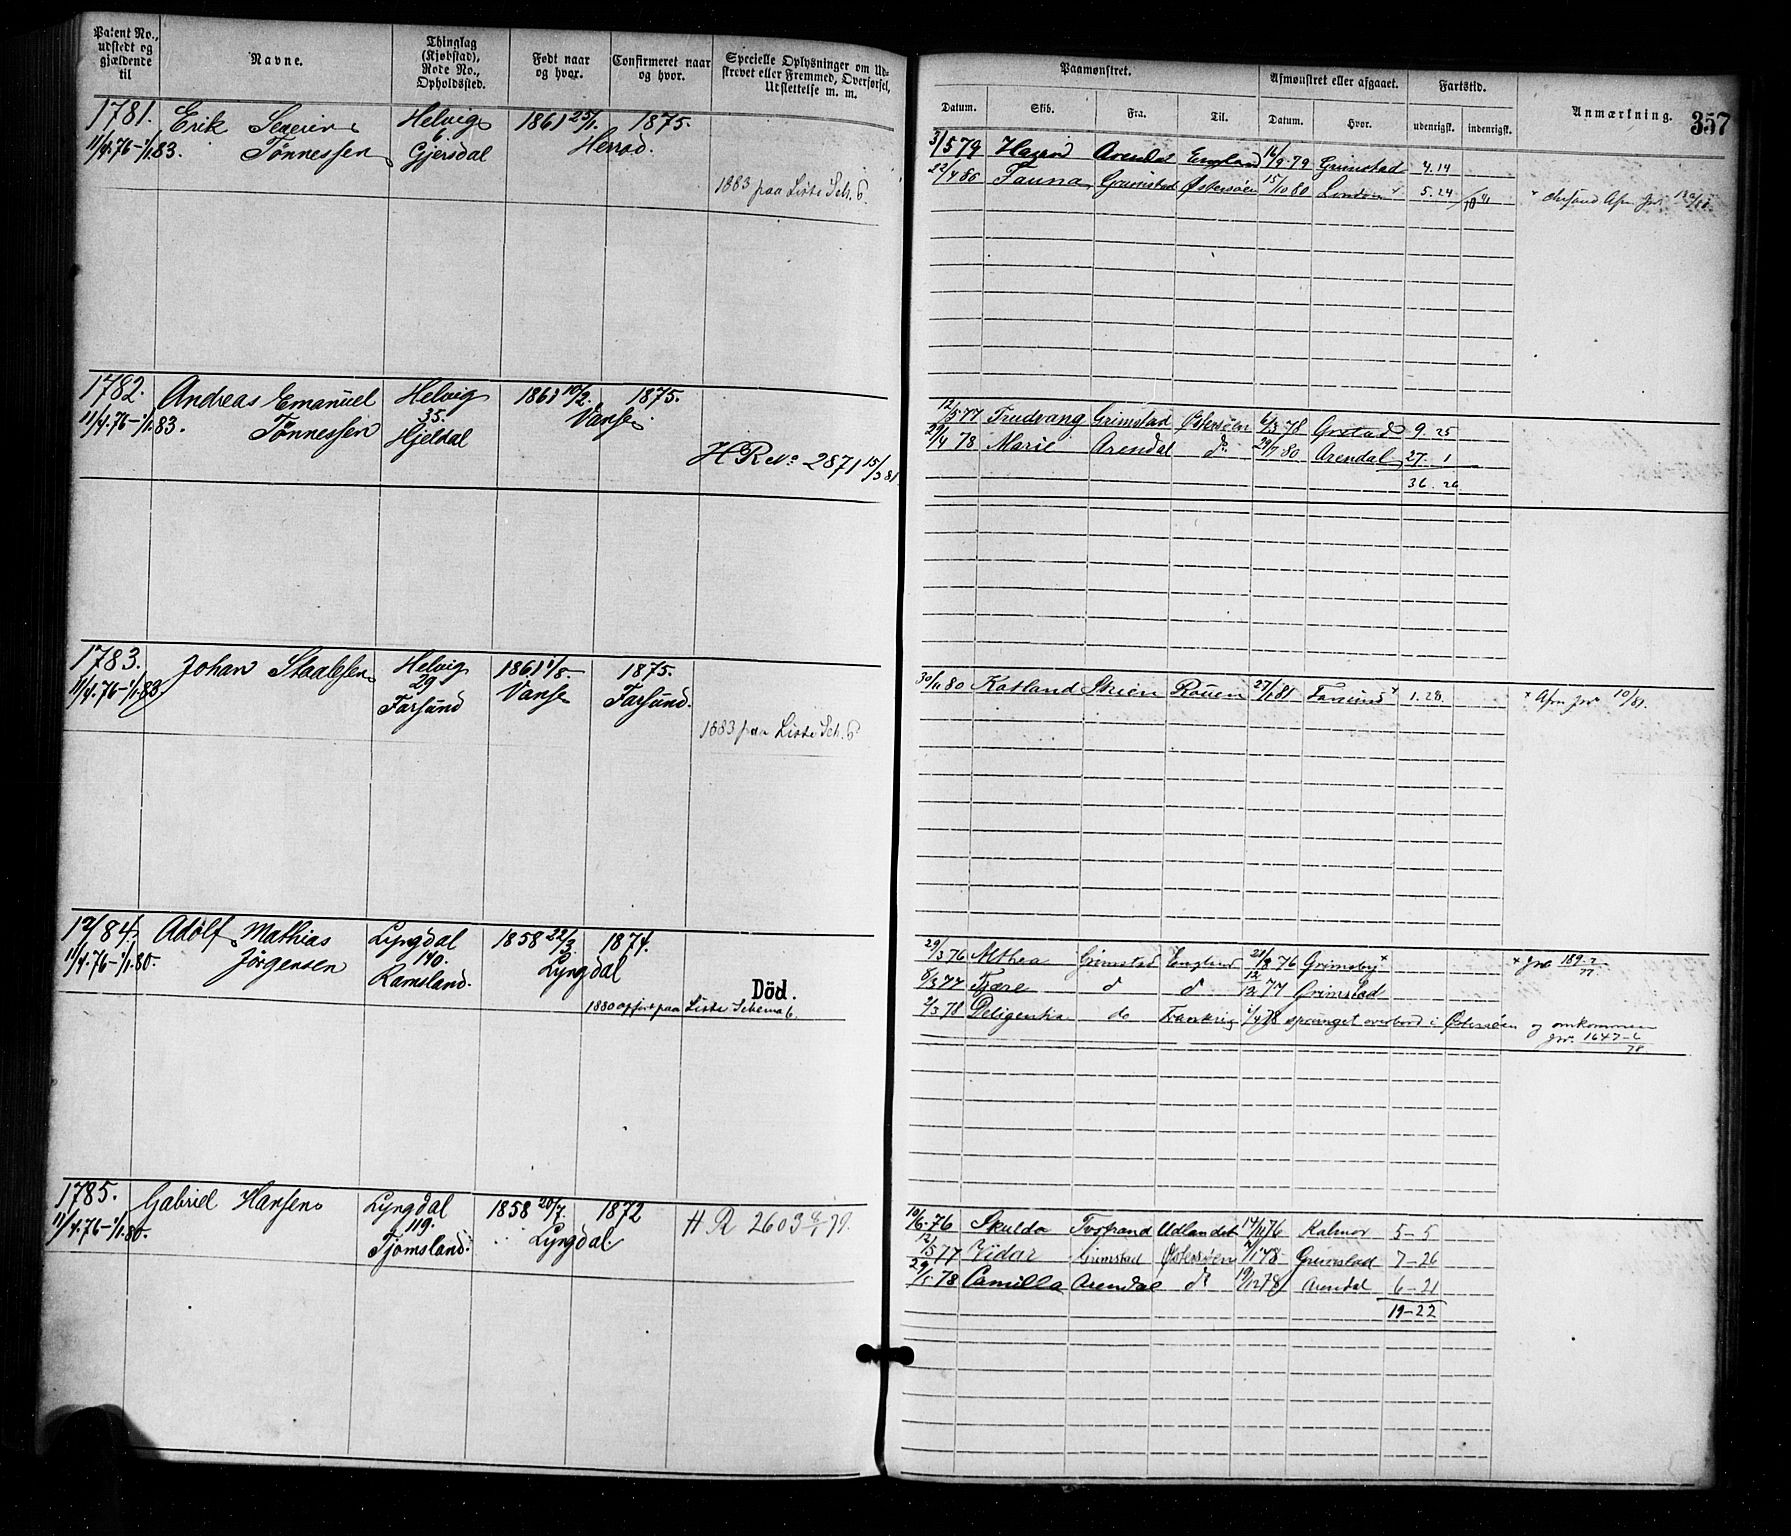 Patent No.,
udstedt og
gjældende
til
Navne.
Thinglag
(Kjøbstad),
Rode No.,
Opholdssted.
Født naar
og hvor.
Confirmeret naar
og hvor.
Specielle Oplysninger om Ud-
skrevet eller Fremmed, Overførsel,
Udslettelse m. m.
1781. Erik Severin Helvig 1861 25/1. 1875.
11/4.76-1/1.83. Tønnessen 6. Gjersdal Herrad.
1883 paa Liste Sch. 6
1782. Andreas Emanuel Helvig 1861 10/2. 1875.
11/4.76-1/1.83. Tønnessen 35. Hjeldal Vanse
H R No 2871 15/3 81
1783. Johan Staalesen Helvig 1861 1/8. 1875.
11/4.76-1/1.83 29 Farsund Vanse Farsund.
1883 paa Liste Sch. 6
1784. Adolf Mathias Lyngdal 1858 22/3. 1874.
11/4.76-1/1.80. Jørgensen 140. Ramsland. Lyngdal
Död.
1880 opført paa Liste Schema 6
1785. Gabriel Hansen Lyngdal 1858 20/7. 1872
11/4.76-1/1.80. 119. Tjomsland. Lyngdal
H R 2603 79.
Paamønstret.
Afmønstret eller afgaaet.
Fartstid.
Anmærkning. 357
Datum. Skib. Fra. Til. Datum. Hvor. udenrigsk. indenrigsk.
3/5 79 Arendal England 14/9 79 Grimstad 4.14
22/4 80 Fauna Grimstad Østersøen 15/10 80 London 5.24
12/5 77 Trudvang Grimstad Østersøen 6/3 78 Grstad 9. 25
29/4 78 Marie Arendal do 29/7 80 Arendal 27. 1
36. 26
30/11 80 Skien Rouen 27/1 81 Farsund × 1.28. × Afm Jnr 10/81.
29/3 76 Althea Grimstad England 21/8 76 Grimsby × × Jnr 189-2/77
8/3 77 Fjære d d 12/12 77 Grimstad
2/3 78 Deligentia do Frankrig 1/4 78 sprunget overbord i Østersøen og omkommen
Jnr. 1647-6/78
10/6.76 Skulda Tvestrand Udlandet 14/11 76 Kalmar 5-5
12/5 77 Vidar Grimstad Østersøen 2/1 78 Grimstad 7-26
29/5 78 Camilla Arendal do 19/12 78 Arendal 6-21
19-22